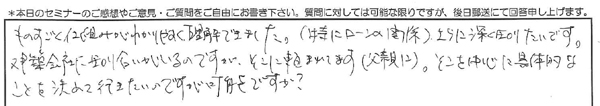 ＊本日のセミナーのご感想やご意見・ご質問をご自由にお書き下さい。質問に対しては可能な限りですが、後日郵送にて回答申し上げます。
ものすごく仕組みがわかりやすく理解できました。(特にローンの関係)さらに深く知りたいです。
建築会社に知り合いがいるのですが、そこに頼まれてます(父親に)。そこを中心に具体的な
ことを決めて行きたいのですが可能ですか？